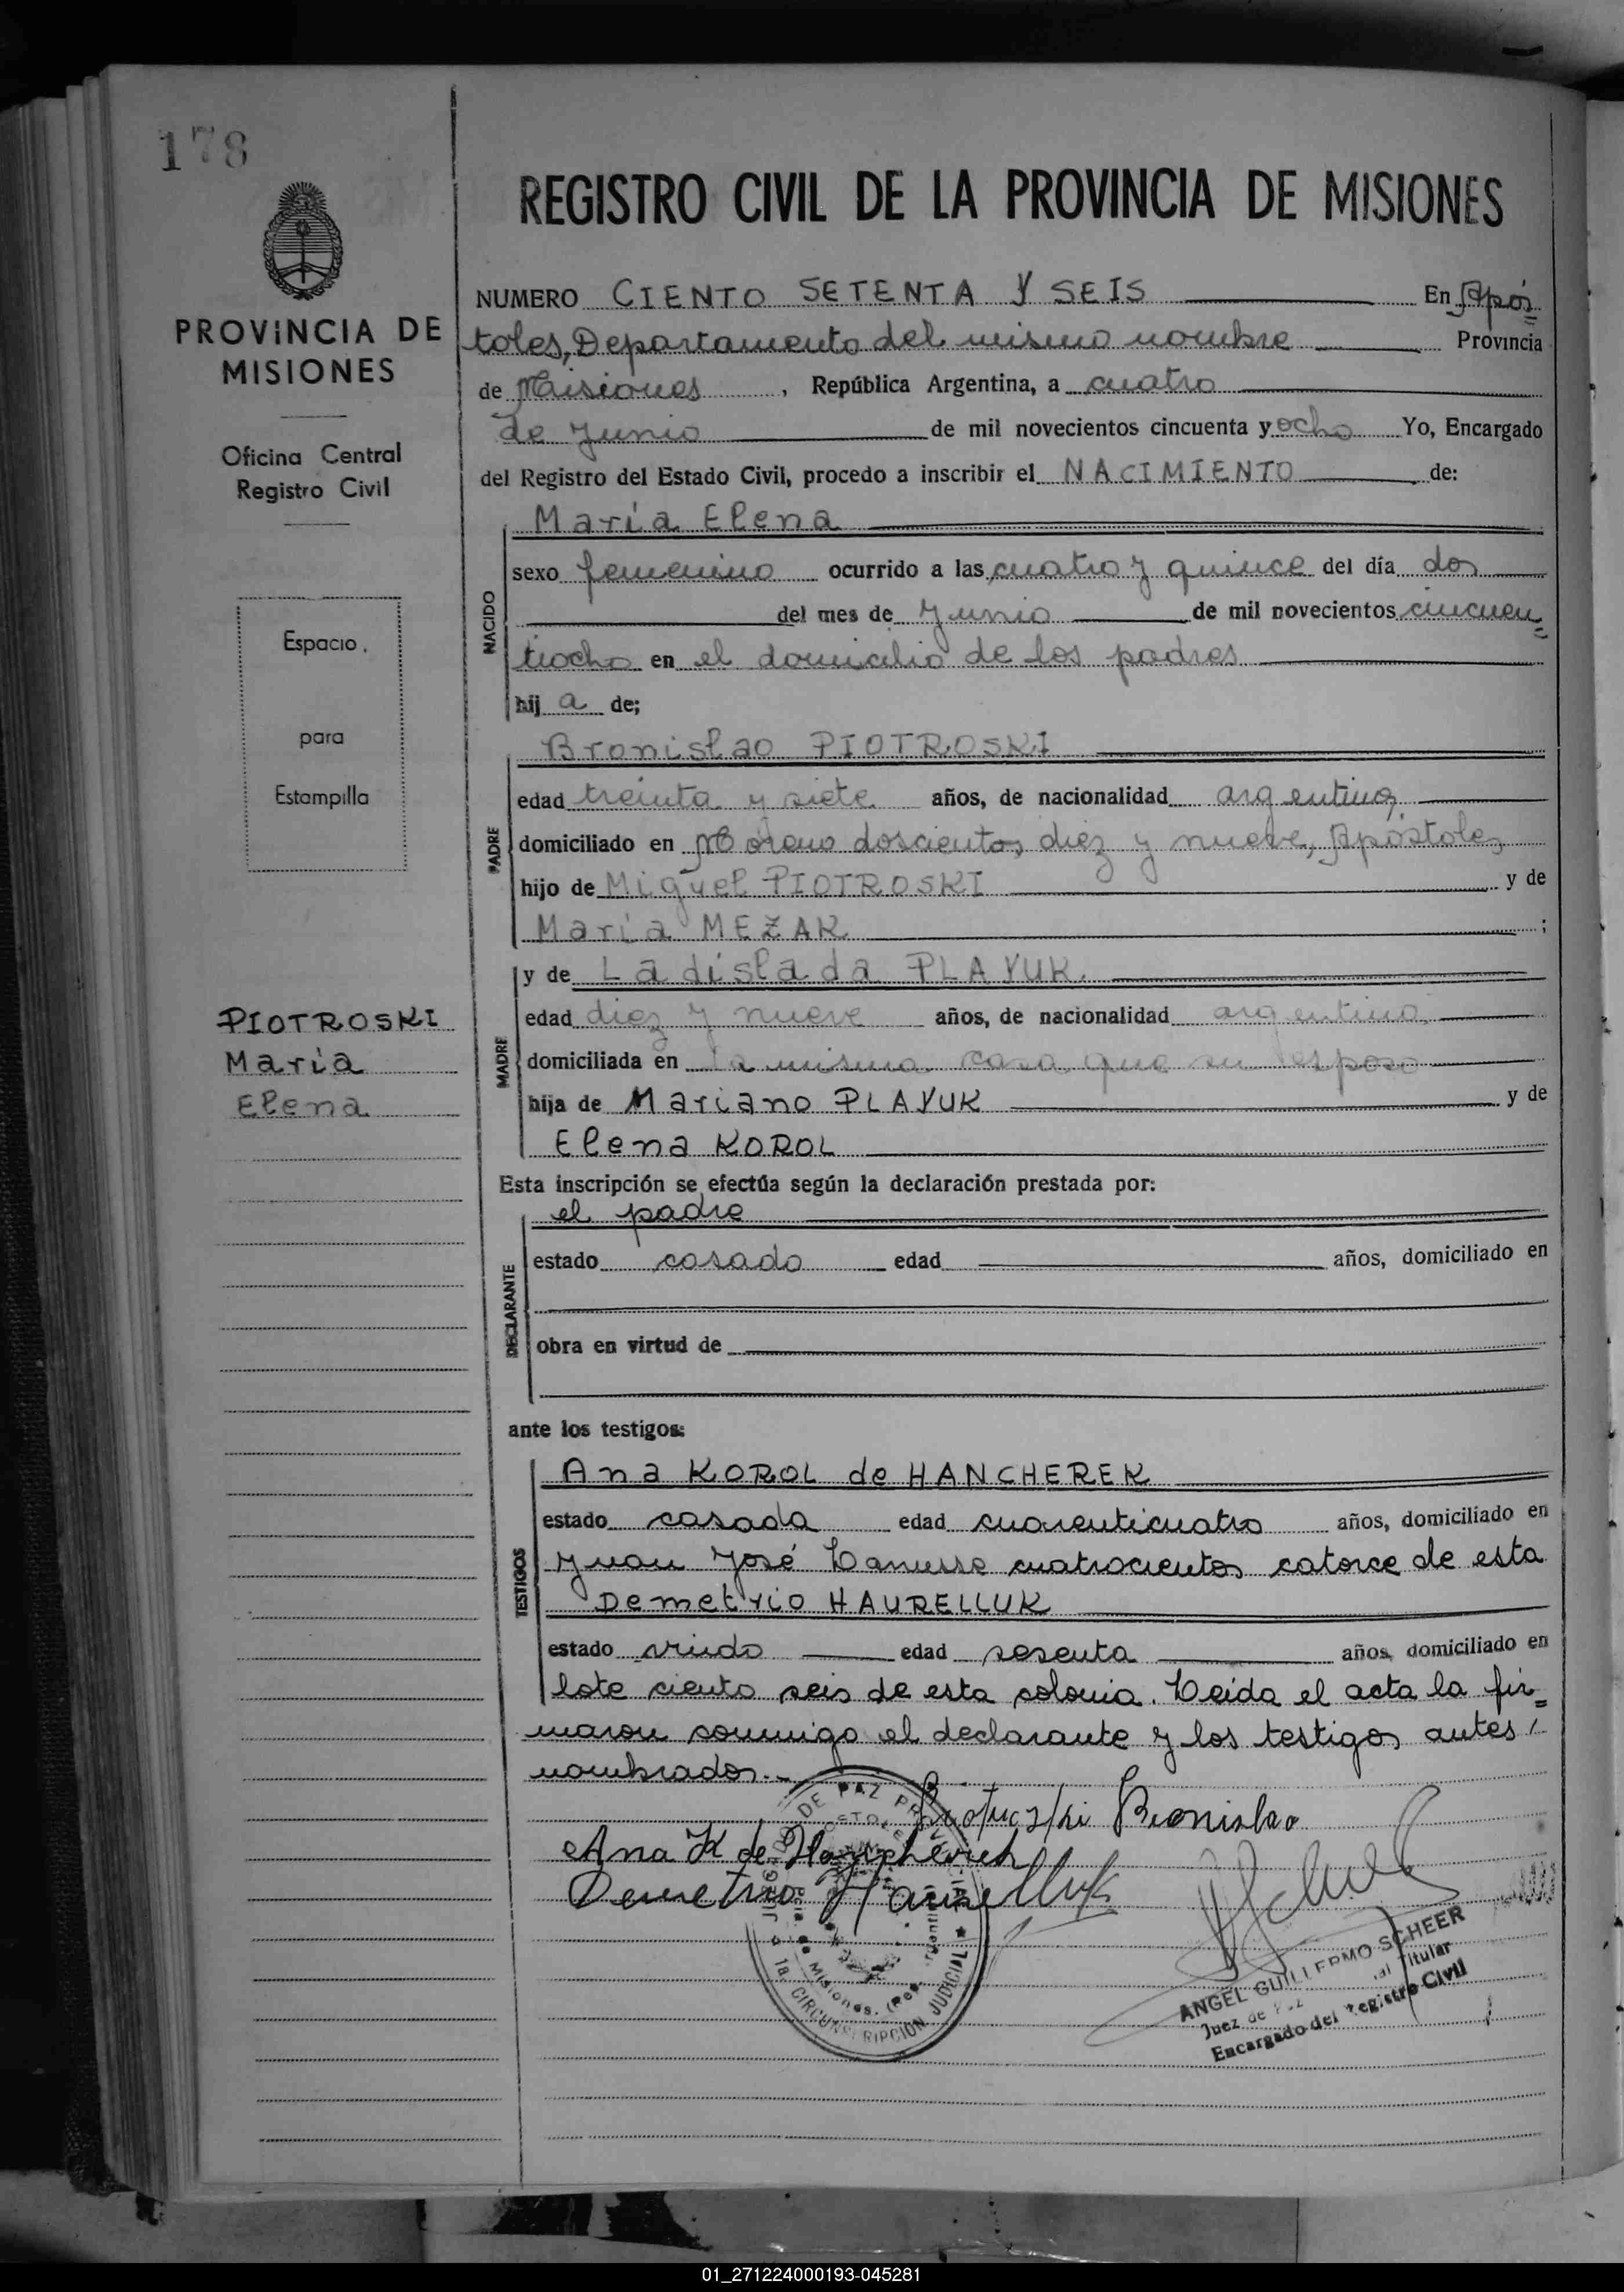 178
PROVINCIA DE
MISIONES
Oficina Central
Registro Civil
Espacio
para
Estampilla
PIOTROSKI
María
Elena
REGISTRO CIVIL DE LA PROVINCIA DE MISIONES
NUMERO CIENTO SETENTA Y SEIS En Após=
toles, Departamento del mismo nombre Provincia
de Misiones, República Argentina, a cuatro
de Junio de mil novecientos cincuenta y ocho Yo, Encargado
del Registro del Estado Civil, procedo a inscribir el NACIMIENTO de:
NACIDO
María Elena
sexo femenino ocurrido a las cuatro y quince del día dos
del mes de Junio de mil novecientos cincuen=
tiocho en el domicilio de los padres
hij a de;
PADRE
Bronislao PIOTROSKI
edad treinta y siete años, de nacionalidad argentino,
domiciliado en Moreno doscientos diez y nueve, Apóstoles
hijo de Miguel PIOTROSKI y de
María MEZAK ;
MADRE
y de Ladislada PLAYUK.
edad diez y nueve años, de nacionalidad argentina
domiciliada en la misma casa que su esposo
hija de Mariano PLAYUK y de
Elena KOROL
Esta inscripción se efectúa según la declaración prestada por:
DECLARANTE
el padre
estado casado edad años, domiciliado en
obra en virtud de
ante los testigos:
TESTIGOS
Ana KOROL de HANCHEREK
estado casada edad cuarenticuatro años, domiciliado en
Juan José Lanusse cuatrocientos catorce de esta
Demetrio HAURELLUK
estado viudo edad sesenta años, domiciliado en
lote ciento seis de esta colonia. Leída el acta la fir=
maron conmigo el declarante y los testigos antes
nombrados.-
Piotroski Bronislao
Ana K de
Demetrio Haurelluk
DE PAZ
Misiones. (Rep. Argentina)
1a. CIRCUNSCRIPCION JUDICIAL
ANGEL GUILLERMO SCHEER
Juez de Titular
Encargado del Registro Civil
01_271224000193-045281